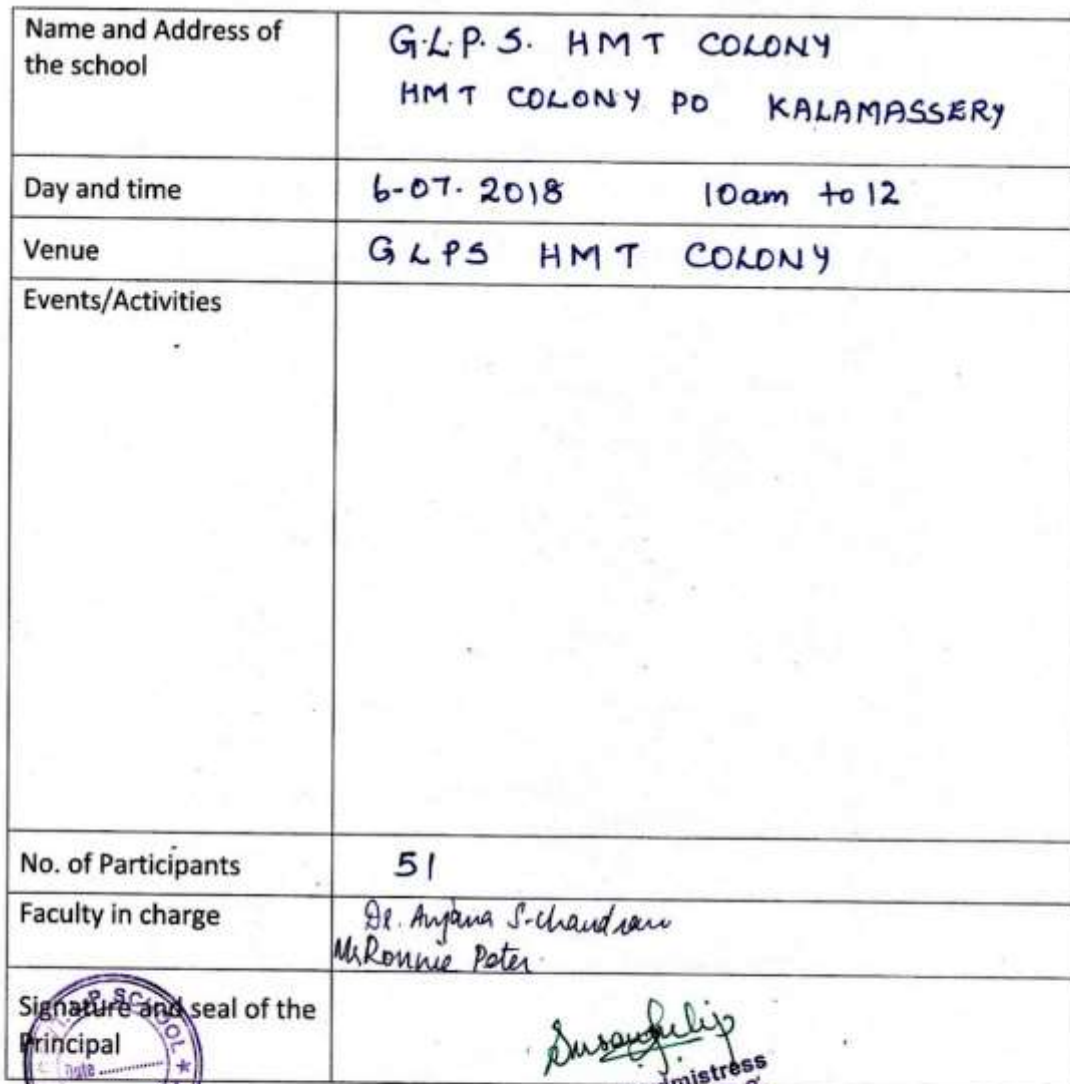 Name and Address of
the school
G.L.P.S. HMT COLONY
HMT COLONY PO KALAMASSERY
Day and time
6-07-2018 10am to 12
Venue
GLPS HMT COLONY
Events/Activities
No. of Participants
51
Faculty in charge
Dr. Anjana S. Chandran
Ms Ronnie Peter
Signature and seal of the
Principal
P. SCHOOL
Date